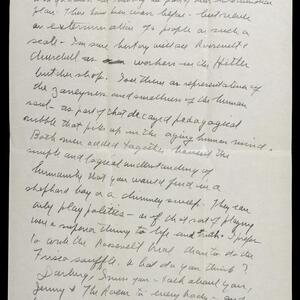 plan. There have been wars before - but never
an extermination of people on such a
scale - I'm sure history will see Roosevelt &
Churchill as workers in the Hitler
butcher shop. I see them as representatives of
the zaneyness and smallness of the human
soul - as part of that decayed pedagogical
rubble that piles up in the aging human mind.
Both men added together haven't the
simple and logical understanding of
humanity that you would find in a
shepherd boy or a chimney sweep. They can
only play politics - as if that sort of playing
was a superior thing to life and truth. I prefer
to write the Roosevelt that than to do the
Frisco souffle. What do you think?
Darling, I miss you - talk about you,
Jenny & The Haven to everybody - and